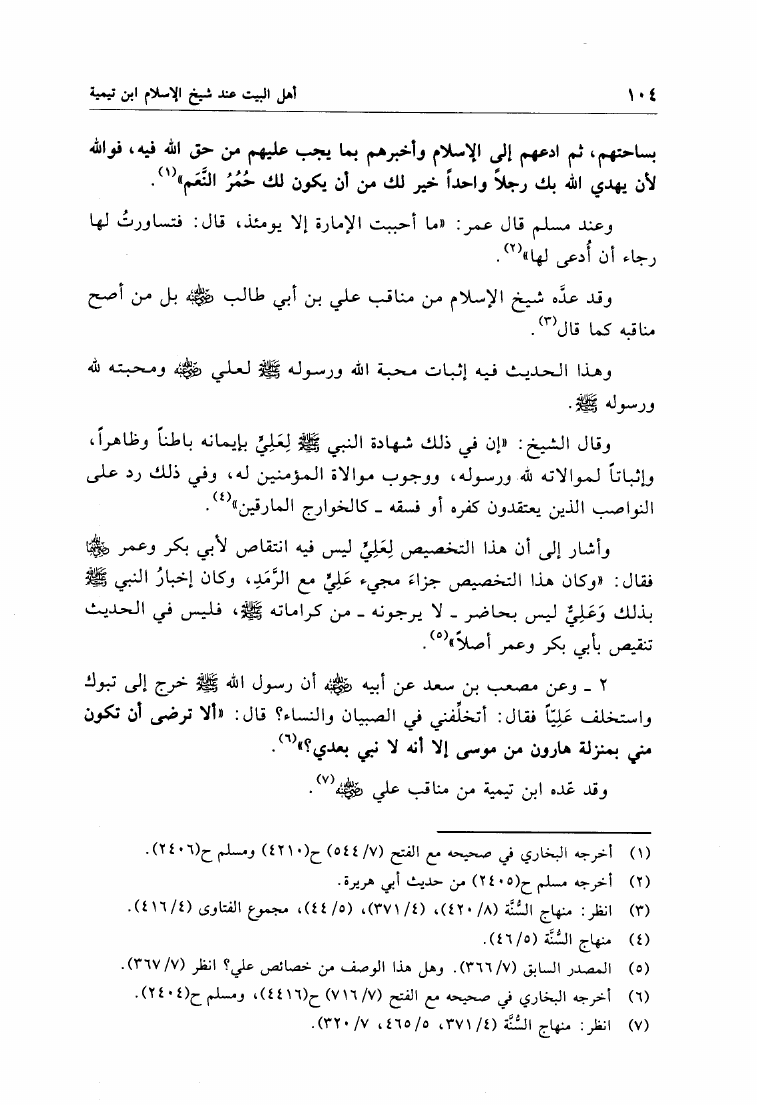 ١٠٤ أهل البيت عند شيخ الإسلام ابن تيمية
بساحتهم، ثم ادعهم إلى الإسلام وأخبرهم بما يجب عليهم من حق الله فيه، فوالله
لأن يهدي الله بك رجلاً واحداً خير لك من أن يكون لك حُمْرُ النَّعَم»(١).
وعند مسلم قال عمر: «ما أحببت الإمارة إلا يومئذ، قال: فتساورتُ لها
رجاء أن أُدعى لها»(٢).
وقد عدَّه شيخ الإسلام من مناقب علي بن أبي طالب رضي الله عنه بل من أصح
مناقبه كما قال(٣).
وهذا الحديث فيه إثبات محبة الله ورسوله ﷺ لعلي رضي الله عنه ومحبته لله
ورسوله ﷺ.
وقال الشيخ: «إن في ذلك شهادة النبي ﷺ لِعَلِيٍّ بإيمانه باطناً وظاهراً،
وإثباتاً لموالاته لله ورسوله، ووجوب موالاة المؤمنين له، وفي ذلك رد على
النواصب الذين يعتقدون كفره أو فسقه ـ كالخوارج المارقين»(٤).
وأشار إلى أن هذا التخصيص لِعَلِيٍّ ليس فيه انتقاص لأبي بكر وعمر رضي الله عنهما
فقال: «وكان هذا التخصيص جزاءَ مجيء عَلِيٍّ مع الرَّمَدِ، وكان إخبارُ النبي ﷺ
بذلك وَعَلِيٌّ ليس بحاضر ـ لا يرجونه ـ من كراماته ﷺ، فليس في الحديث
تنقيص بأبي بكر وعمر أصلاً»(٥).
٢ ـ وعن مصعب بن سعد عن أبيه رضي الله عنه أن رسول الله ﷺ خرج إلى تبوك
واستخلف عَلِيّاً فقال: أتخلِّفني في الصبيان والنساء؟ قال: «ألا ترضى أن تكون
مني بمنزلة هارون من موسى إلا أنه لا نبي بعدي؟»(٦).
وقد عّده ابن تيمية من مناقب علي رضي الله عنه(٧).
(١) أخرجه البخاري في صحيحه مع الفتح (٥٤٤/٧) ح(٤٢١٠) ومسلم ح(٢٤٠٦).
(٢) أخرجه مسلم ح(٢٤٠٥) من حديث أبي هريرة.
(٣) انظر: منهاج السُّنَّة (٤٢٠/٨)، (٣٧١/٤)، (٤٤/٥)، مجموع الفتاوى (٤١٦/٤).
(٤) منهاج السُّنَّة (٤٦/٥).
(٥) المصدر السابق (٣٦٦/٧). وهل هذا الوصف من خصائص علي؟ انظر (٣٦٧/٧).
(٦) أخرجه البخاري في صحيحه مع الفتح (٧١٦/٧) ح(٤٤١٦)، ومسلم ح(٢٤٠٤).
(٧) انظر: منهاج السُّنَّة (٣٧١/٤، ٤٦٥/٥، ٣٢٠/٧).